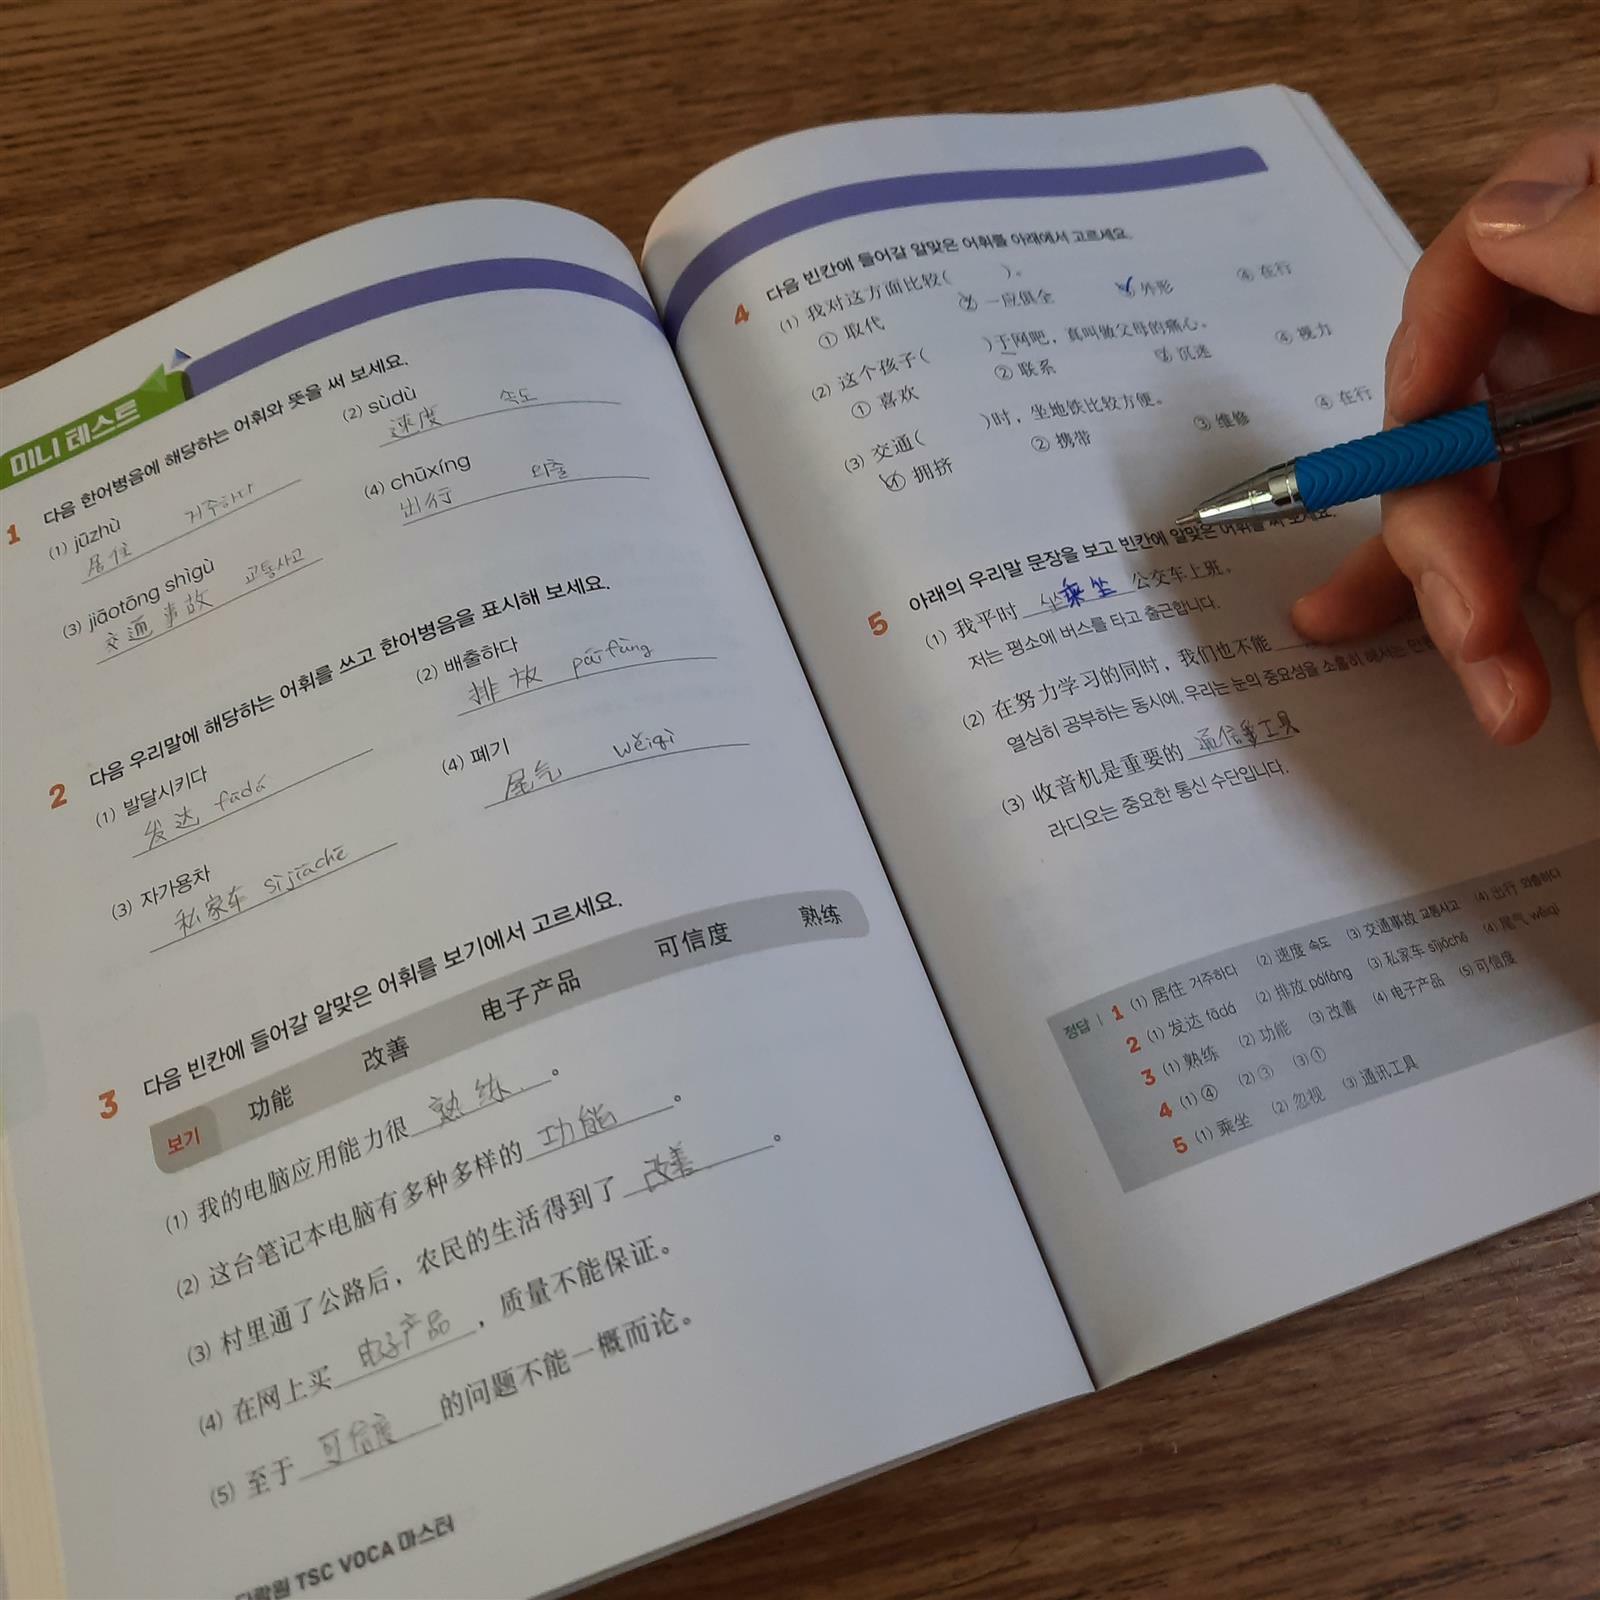 미니 테스트
1 다음 한어병음에 해당하는 어휘와 뜻을 써 보세요.
(1) jūzhù
居住 거주하다
(2) sùdù
速度 속도
(3) jiāotōng shìgù
交通事故 교통사고
(4) chūxíng
出行 외출
2 다음 우리말에 해당하는 어휘를 쓰고 한어병음을 표시해 보세요.
(1) 발달시키다
发达 fādá
(2) 배출하다
排放 páifàng
(3) 자가용차
私家车 sìjiāchē
(4) 폐기
尾气 wěiqì
3 다음 빈칸에 들어갈 알맞은 어휘를 보기에서 고르세요.
보기 功能 改善 电子产品 可信度 熟练
(1) 我的电脑应用能力很 熟练。
(2) 这台笔记本电脑有多种多样的 功能。
(3) 村里通了公路后，农民的生活得到了 改善。
(4) 在网上买 电子产品，质量不能保证。
(5) 至于 可信度 的问题不能一概而论。
다락원 TSC VOCA 마스터
4 다음 빈칸에 들어갈 알맞은 어휘를 아래에서 고르세요.
(1) 我对这方面比较( )。
① 取代 ② 一应俱全 ③ 外形 ④ 在行
(2) 这个孩子( )于网吧，真叫做父母的痛心。
① 喜欢 ② 联系 ③ 沉迷 ④ 视力
(3) 交通( )时，坐地铁比较方便。
① 拥挤 ② 携带 ③ 维修 ④ 在行
5 아래의 우리말 문장을 보고 빈칸에 알맞은 어휘를 써 보세요.
(1) 我平时 坐乘坐 公交车上班。
저는 평소에 버스를 타고 출근합니다.
(2) 在努力学习的同时，我们也不能
열심히 공부하는 동시에, 우리는 눈의 중요성을 소홀히 해서는 안
(3) 收音机是重要的 通信工具
라디오는 중요한 통신 수단입니다.
정답 1 (1) 居住 거주하다 (2) 速度 속도 (3) 交通事故 교통사고 (4) 出行 외출하다
2 (1) 发达 fādá (2) 排放 páifàng (3) 私家车 sījiāchē (4) 尾气 wěiqì
3 (1) 熟练 (2) 功能 (3) 改善 (4) 电子产品 (5) 可信度
4 (1) ④ (2) ③ (3) ①
5 (1) 乘坐 (2) 忽视 (3) 通讯工具